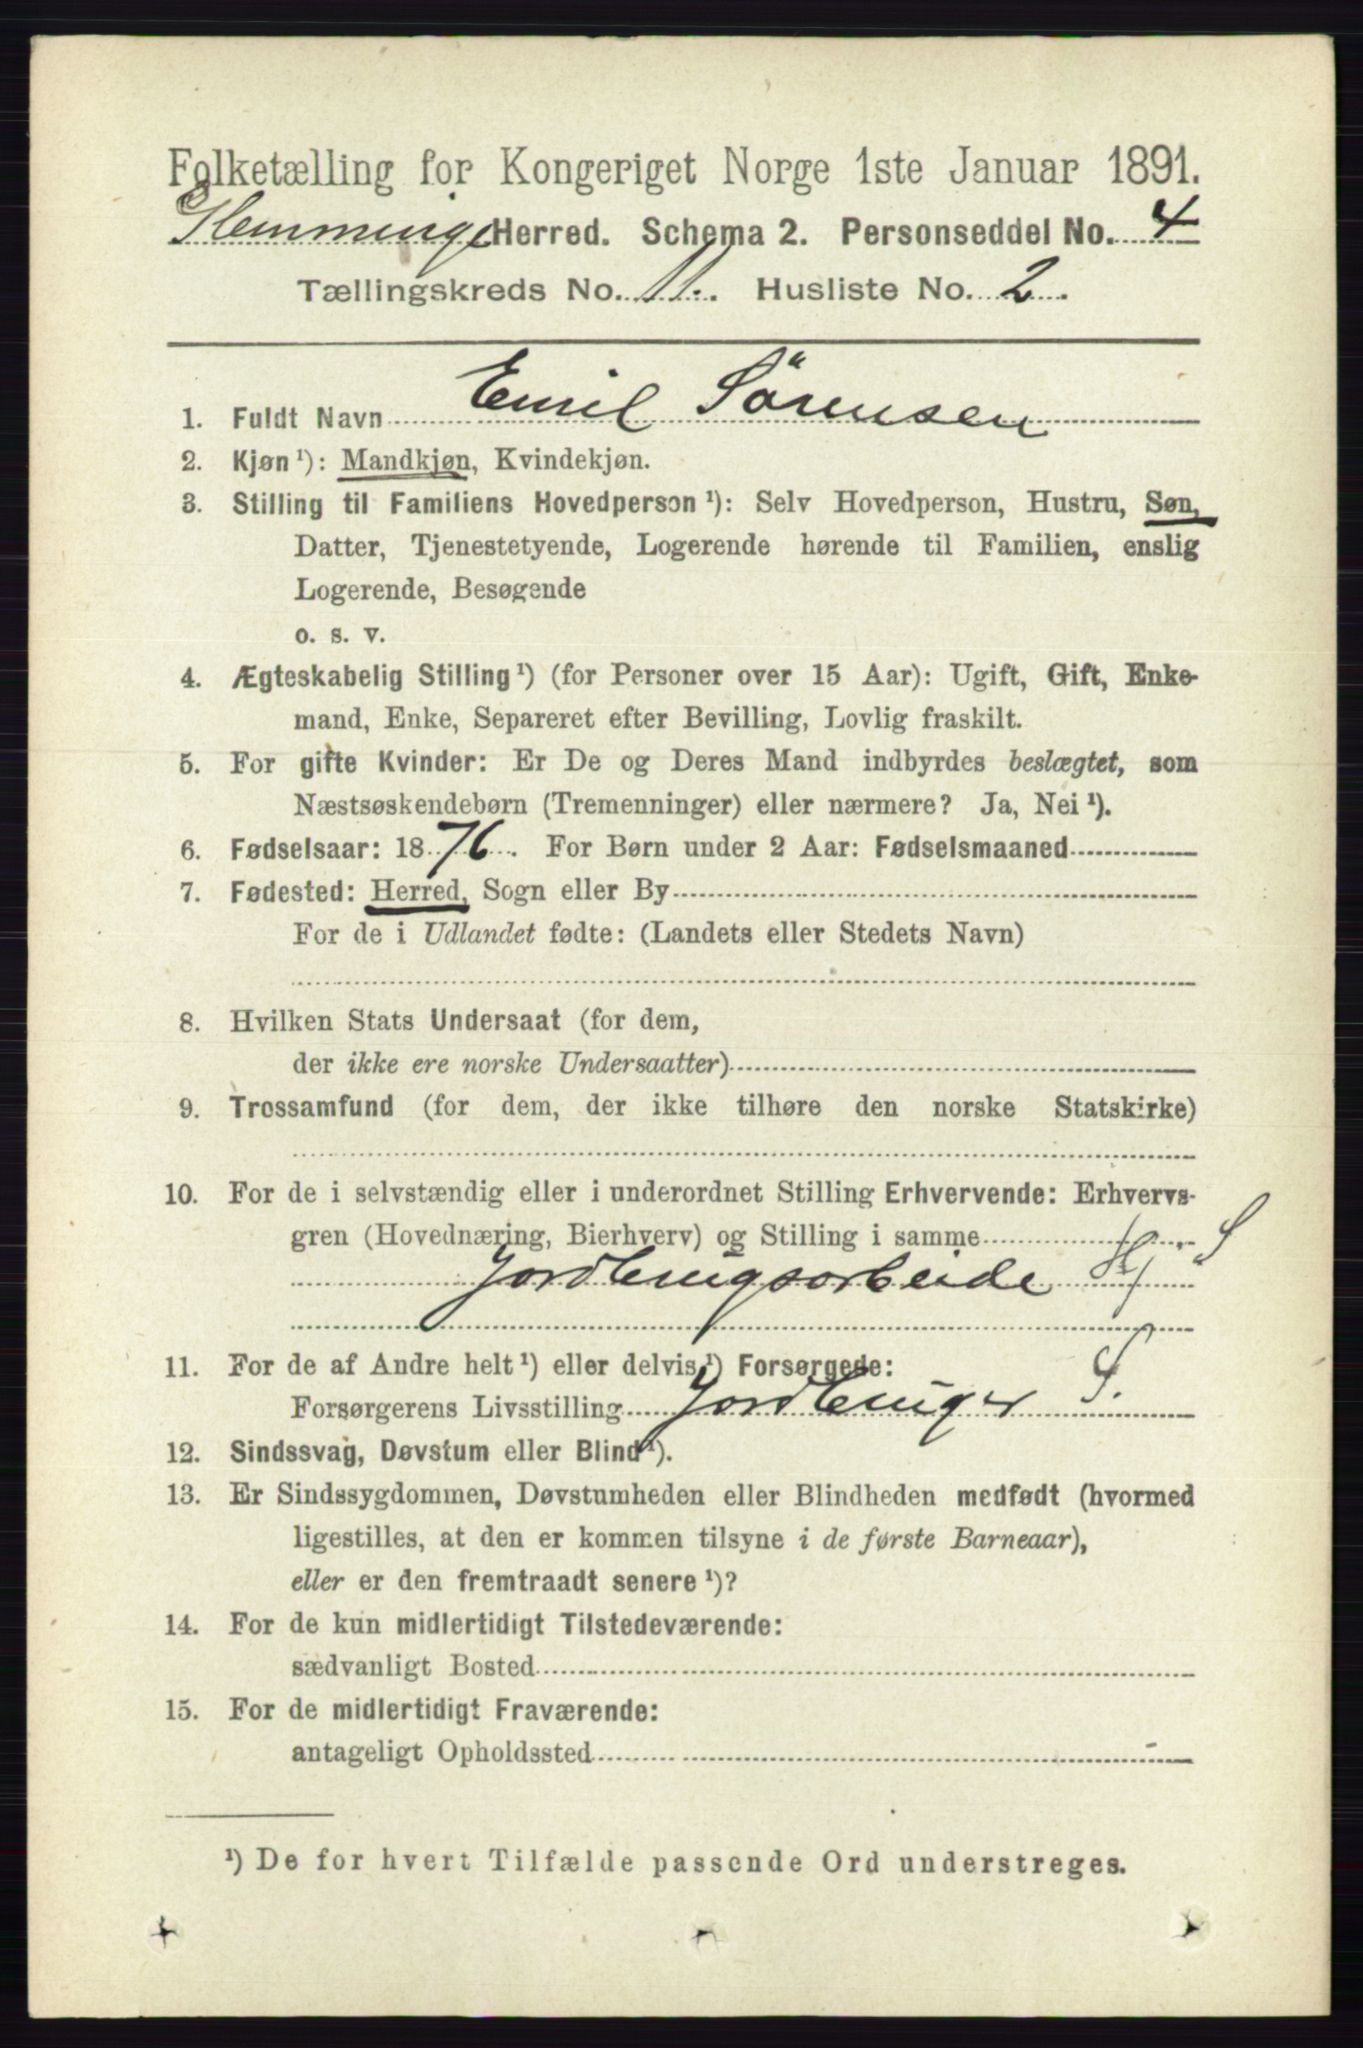 Folketælling for Kongeriget Norge 1ste Januar 1891.
Herred. Schema 2. Personseddel No. 4
Tællingskreds No. 11. Husliste No. 2.
1. Fuldt Navn Emil Sörensen
2. Kjøn ¹): Mandkjøn, Kvindekjøn.
3. Stilling til Familiens Hovedperson ¹): Selv Hovedperson, Hustru, Søn,
Datter, Tjenestetyende, Logerende hørende til Familien, enslig
Logerende, Besøgende
o. s. v.
4. Ægteskabelig Stilling ¹) (for Personer over 15 Aar): Ugift, Gift, Enke-
mand, Enke, Separeret efter Bevilling, Lovlig fraskilt.
5. For gifte Kvinder: Er De og Deres Mand indbyrdes beslægtet, som
Næstsøskendebørn (Tremenninger) eller nærmere? Ja, Nei ¹).
6. Fødselsaar: 1876. For Børn under 2 Aar: Fødselsmaaned
7. Fødested: Herred, Sogn eller By
For de i Udlandet fødte: (Landets eller Stedets Navn)
8. Hvilken Stats Undersaat (for dem,
der ikke ere norske Undersaatter)
9. Trossamfund (for dem, der ikke tilhøre den norske Statskirke)
10. For de i selvstændig eller i underordnet Stilling Erhvervende: Erhvervs-
gren (Hovednæring, Bierhverv) og Stilling i samme
Jordbrugsarbeide
11. For de af Andre helt ¹) eller delvis ¹) Forsørgede:
Forsørgerens Livsstilling Jordbruger S.
12. Sindssvag, Døvstum eller Blind ¹).
13. Er Sindssygdommen, Døvstumheden eller Blindheden medfødt (hvormed
ligestilles, at den er kommen tilsyne i de første Barneaar),
eller er den fremtraadt senere ¹)?
14. For de kun midlertidigt Tilstedeværende:
sædvanligt Bosted
15. For de midlertidigt Fraværende:
antageligt Opholdssted
¹) De for hvert Tilfælde passende Ord understreges.